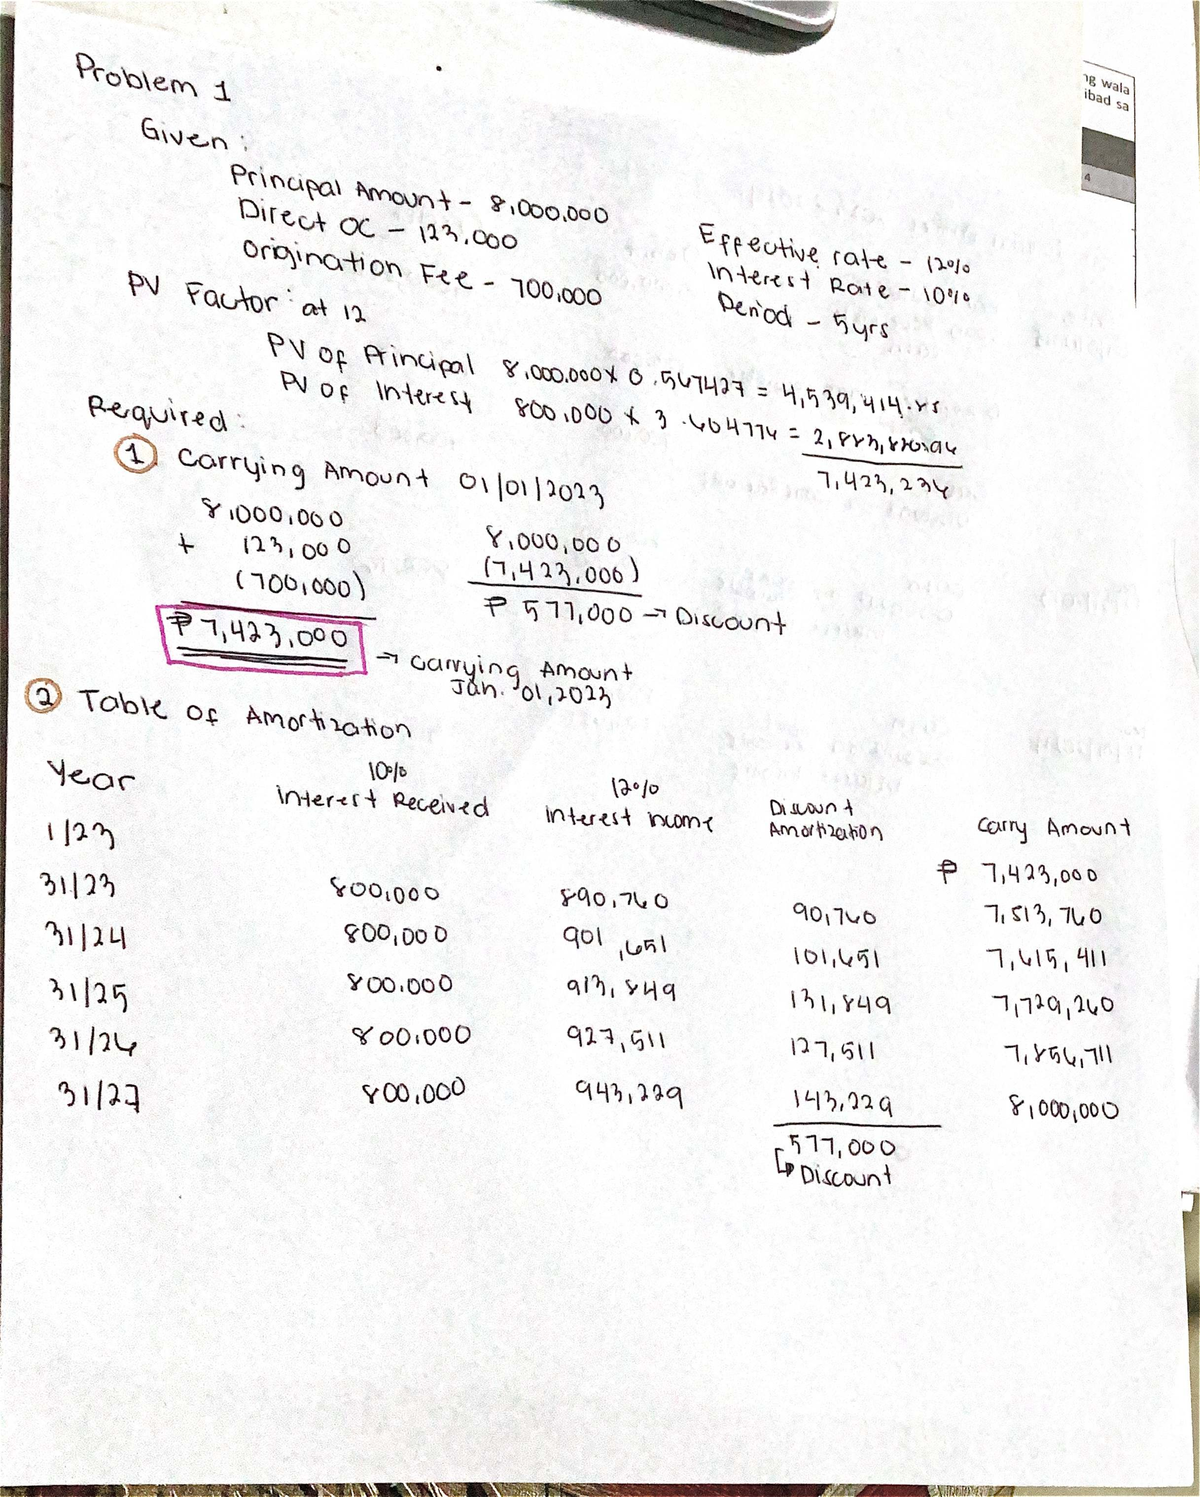 ng wala
ibad sa
4
Problem 1
Given:
Principal Amount - 8,000,000
Direct OC - 123,000
Origination Fee - 700,000
Effective rate - 12%
Interest Rate - 10%
Period - 5yrs
PV Factor: at 12
PV of Principal 8,000,000 x 0.567427 = 4,539,414.
PV of Interest 800,000 x 3.604776 = 2,883,820.96
7,423,236
Required:
1 Carrying Amount 01/01/2023
8,000,000
+ 123,000
(700,000)
₱ 7,423,000
→ Carrying Amount Jan. 01, 2023
8,000,000
(7,423,000)
₱ 577,000 → Discount
2 Table of Amortization
Year 10% Interest Received 12% Interest income Discount Amortization Carry Amount
1/23 ₱ 7,423,000
31/23 800,000 890,760 90,760 7,513,760
31/24 800,000 901,651 101,651 7,615,411
31/25 800,000 913,849 131,849 7,729,260
31/26 800,000 927,511 127,511 7,856,711
31/27 800,000 943,229 143,229 8,000,000
577,000
↳ Discount